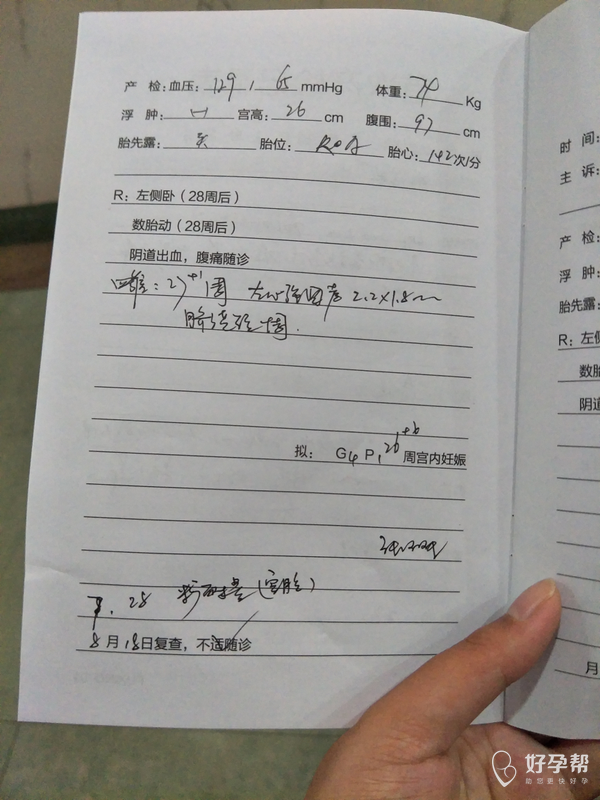 产 检：血压：129 / 65 mmHg 体重：74 Kg
浮 肿：(-) 宫高：26 cm 腹围：97 cm
胎先露：头 胎位：ROA 胎心：142次/分
R：左侧卧（28周后）
数胎动（28周后）
阴道出血，腹痛随诊
四维：27+1周 左心强回声 2.2×1.8mm
脐绕颈一周.
拟： G4 P1 26+6 周宫内妊娠
7. 28
8月18日复查，不适随诊
时 间：
主 诉：
产 检：
浮 肿：
胎先露：
R：左侧
数胎
阴道
月
好孕帮
助您更快好孕